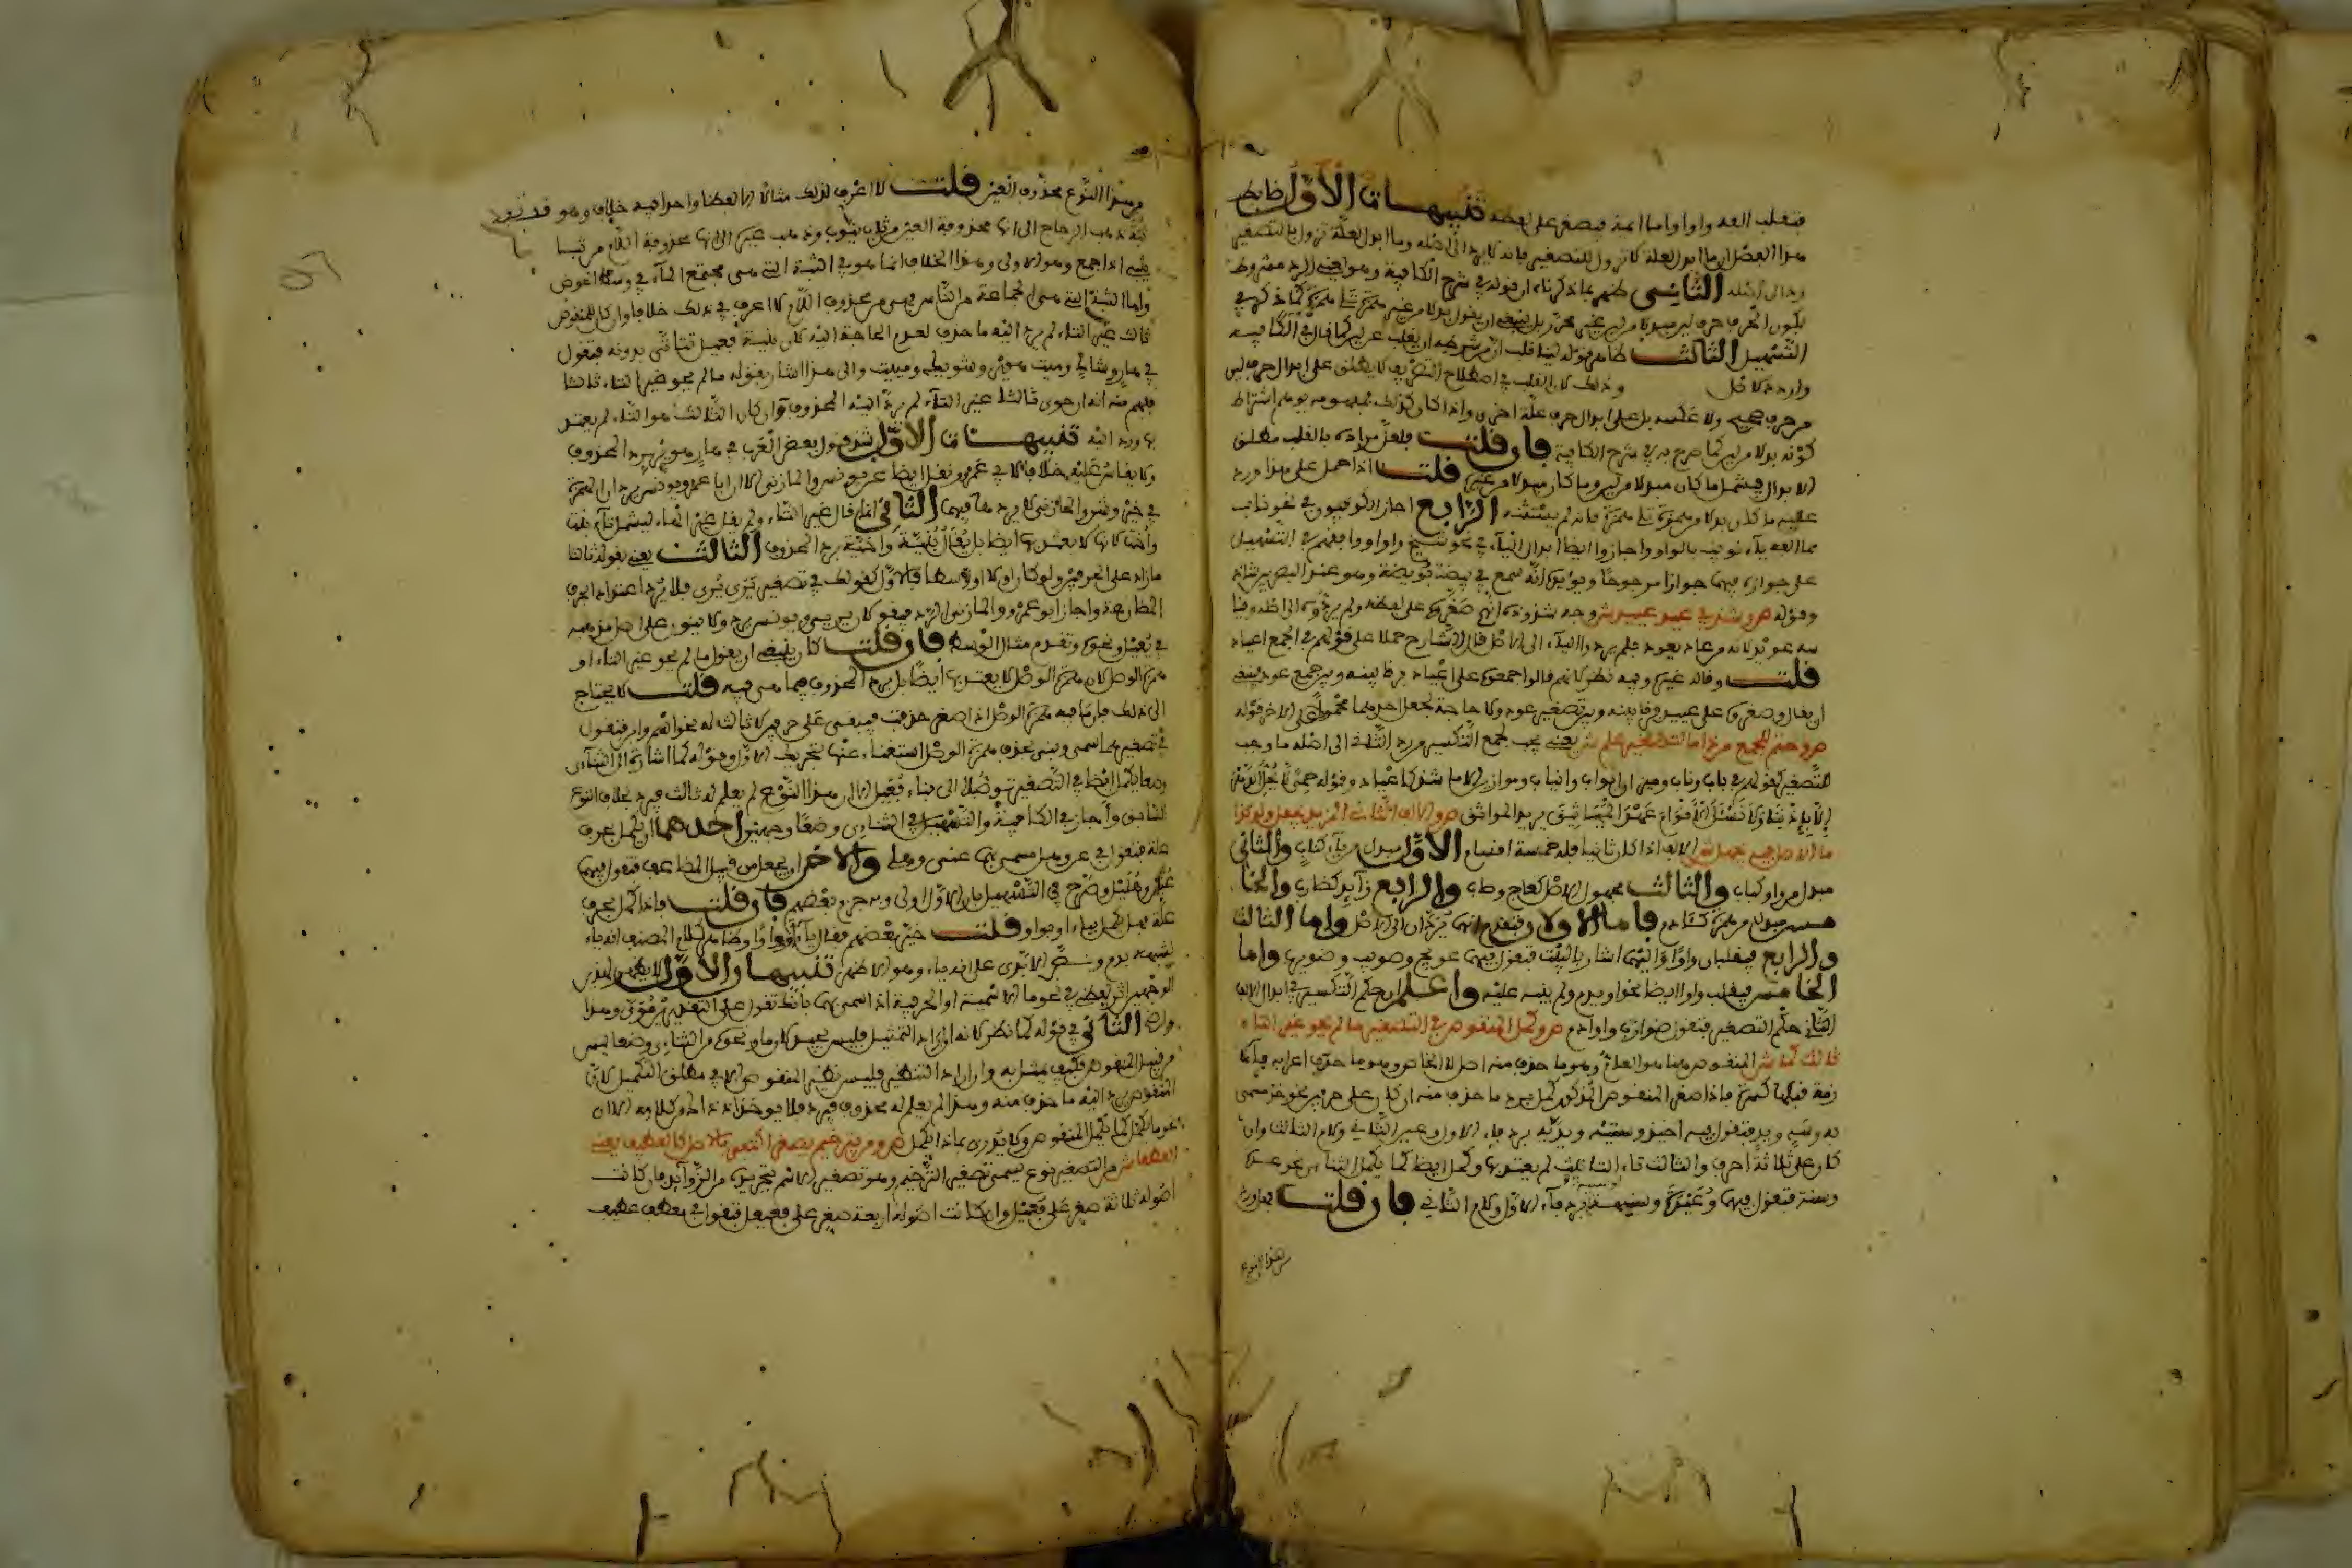 فتقلب الفه واوا واما ايمة فيصغر على لفظه تنبيهات الأول ضابط
هذا الفصل ان ما ابدل لعلة لا تزول بالتصغير فانه لا يرد الى اصله وما ابدل لعلة تزول بالتصغير
يرد الى اصله الثاني ظهر بما ذكرناه ان قوله في شرح الكافية وهو يعني الرد مشروط
بكون الحرف حرف لين مبدلا من لين غير محرر بل ينبغي ان يقول بدلا من غير همزة تلي همزة كما ذكر في
التسهيل الثالث ظاهر قوله لينا قلب ان من شرطه ان يقلب عن لين كما قال في الكافية
واردد لاصل وذلك لان القلب في اصطلاح التصريف لا يطلق على ابدال حرف لين
من حرف صحيح ولا عكسه بل على ابدال حرف علة اخرى واذا كان كذلك فمفهومه يوهم اشتراط
كونه بدلا من لين كما صرح به في شرح الكافية فان قلت فلعل مراده بالقلب مطلق
الابدال فيشمل ما كان مبدلا من لين وما كان مبدلا من غير قلت اذا حمل على هذا ورد
عليه ما كان بدلا من همزة تلي همزة فانه لم يستثنه الرابع اجاز الكوفيون في نحو ناب
مما الفه ياء نويب بالواو واجازوا ايضا ابدال الياء في نحو شيخ واوا ووافقهم في التسهيل
على جوازه فيهما جوازا مرجوحا ويؤيده انه سمع في بيضة بويضة وهو عند البصريين شاذ
وقوله ص وشذ في عيد عييد ش وجه شذوذه انهم صغروه على لفظه ولم يردوه الى اصله وقيا
سه عويد لانه من عاد يعود فلم يردوا الياء الى الاصل قال الشارح حملا على قولهم في الجمع اعياد
قلت وقاله غيره وفيه نظر لانهم قالوا جمعوه على اعياد فرقا بينه وبين جمع عود فينبغي
ان يقال وصغروه على عييد فرقا بينه وبين تصغير عود ولا حاجة لجعل احدهما محمولا على الاخر قوله
ص وحتم للجمع من ذا ما لتصغير علم ش يعني يجب لجمع التكسير من رد الثاني الى اصله ما وجب
للتصغير كقولهم في باب وناب وميزان ابواب وانياب وموازين الا ما شذ كاعياد وقوله حمى لا يحل الدهر
الا باذننا ولا نسئل الاقوام عهد المياثق يريد المواثق ص والالف الثاني المزيد يجعل واوا كذا
ما الاصل فيه يجهل ش الالف اذا كان ثانيا فله خمسة اقسام الأول مبدل من ياء كناب والثاني
مبدل من واو كباب والثالث مجهول الاصل كعاج وطى والرابع زايد كضارب والخا
مس مبدل من همزة كئادم فاما الاولان فتقدم انهما يردان الى الاصل واما الثالث
والرابع فيقلبان واوا واليهما اشار بالبيت فتقول فيهما عويج وصويب وضويرب واما
الخامس فيقلب واوا ايضا نحو اويدم ولم ينبه عليه واعلم ان حكم التكسير في ابدال الالف
الثاني حكم التصغير فتقول ضوارب واوادم ص وكمل المنقوص في التصغير ما لم يحو غير التاء
ثالثا كما ش المنقوص هنا هو العام وهو ما حذف منه اصل لا الخاص وهو ما حرف اعرابه ياء لا
زمة قبلها كسرة فاذا صغر المنقوص المذكور كمل برد ما حذف منه ان كان على حرفين نحو خذ مسمى
به وسه ويد فتقول فيه اخيذ وستيه ويدية برد فاء الاول وعين الثاني ولام الثالث وان
كان على ثلاثة احرف والثالث تاء التانيث لم يعتد بها وكمل ايضا كما يكمل الثناءي نحو عدة
وسنة فتقول فيهما وعيدة وسنيهة برد فاء الاول ولام الثاني فان قلت فما ورد
من هذا النوع
من هذا النوع محذوف العين قلت لا اعرف لذلك مثالا الا لفظا واحدا فيه خلاف وهو
ثبة ذهب الزجاج الى انها محذوفة العين من ثاب يثوب وذهب غيره الى انها محذوفة اللام من ثبا
يثبي اذا جمع وهو الاولى وهذا الخلاف انما هو في الثبة التي هي مجتمع الماء في وسط الحوض
واما الثبة التي هي الجماعة من الناس فهي من محذوف اللام لا اعرف في ذلك خلافا وان كان للمنقوص
ثالث غير التاء لم يرد اليه ما حذف لعدم الحاجة اليه لان بنية فعيل تتاتى بدونه فتقول
في هار وشاك وميت هوير وشويك ومييت والى هذا اشار بقوله ما لم يحو غير التاء ثالثا
ففهم منه انه ان حوى ثالثا غير التاء لم يرد اليه المحذوف وان كان الثالث هو التاء لم يعتد
بها ورد اليه تنبيهات الأول شذ قول بعض العرب في هار هويئر برد المحذوف
ولا يقاس عليه خلافا لابي عمرو ونقل ايضا عن يونس والمازني الا ان ابا عمرو ويونس يرد ان الهمزة
في خير وشر والمازني لا يرد ها فيهما الثاني انما قال غير التاء ولم يقل غير الهاء ليشمل تاء بنت
واخت لانها لا يعتد بها ايضا بل يقال بنية واخية برد المحذوف الثالث يعني بقوله ثالثا
ما زاد على الحرفين ولو كان اولا او وسطا فالاول كقولك في تصغير يرى يرى فلا يرد اعتدادا بحرف
المضارعة واجاز ابو عمرو والمازني الرد فيقولان يريئي ويونس يرد ولا ينون على اصل مذهبه
في يعيل ونحوه وتقدم مثال الوسط فان قلت كان ينبغي ان يقول ما لم يحو غير التاء او
همزة الوصل لان همزة الوصل لا يعتد بها ايضا بل يرد المحذوف مما هي فيه قلت لا يحتاج
الى ذلك فان ما فيه همزة الوصل اذا صغر حذفت فيبقى على حرفين لا ثالث له نحو اسم وابن فتقول
في تصغيرهما سمي وبني بحذف همزة الوصل استغناء عنها بتحريك الاول وقوله كما اشارة الى الثناءي
وضعا يكمل ايضا في التصغير توصلا الى بناء فعيل الا ان هذا النوع لم يعلم له ثالث فيرد بخلاف النوع
السابق واجاز في الكافية والتسهيل في الثناءي وضعا وجهين احدهما ان يكمل بحرف
علة فتقول في عن وهل مسمى بهما عنى وهلى والاخر ان يجعل من قبيل المضاعف فتقول فيهما
عنين وهليل وصرح في التسهيل بان الاول اولى وبه جزم بعضهم فان قلت فاذا كمل بحرف
علة فهل يكمل بياء او بواو قلت خير بعضهم فقال ياء او واوا وظاهر كلام المصنف انه ياء
ونص الابذي على انه ياء وهو الاظهر تنبيهان الأول لا يظهر لهذين
الوجهين اثر لفظي في نحو ما الاسمية او الحرفية اذا سمي بها فانك تقول على التقديرين موي وهذا
واضح الثاني في قوله كما نظر لانه ان اراد التمثيل فليس بجيد لان ما ونحوه من الثناءي وضعا ليس
من قبيل المنقوص فكيف يمثل به وان اراد التنظير فليس نظير المنقوص الا في مطلق التكميل لان
المنقوص يرد اليه ما حذف منه وهذا لم يعلم له محذوف فيرد فلا يوخذ
نحو ما يكمل كما يكمل المنقوص ولا يدرى بماذا يكمل ص ومن بترخيم يصغر اكتفى بالاصل كالعطيف يعني
المعطفا ش من التصغير نوع يسمى تصغير الترخيم وهو تصغير الاسم بتجريده من الزوايد فان كانت
اصوله ثلاثة صغر على فعيل وان كانت اصوله اربعة صغر على فعيعل فتقول في معطف عطيف